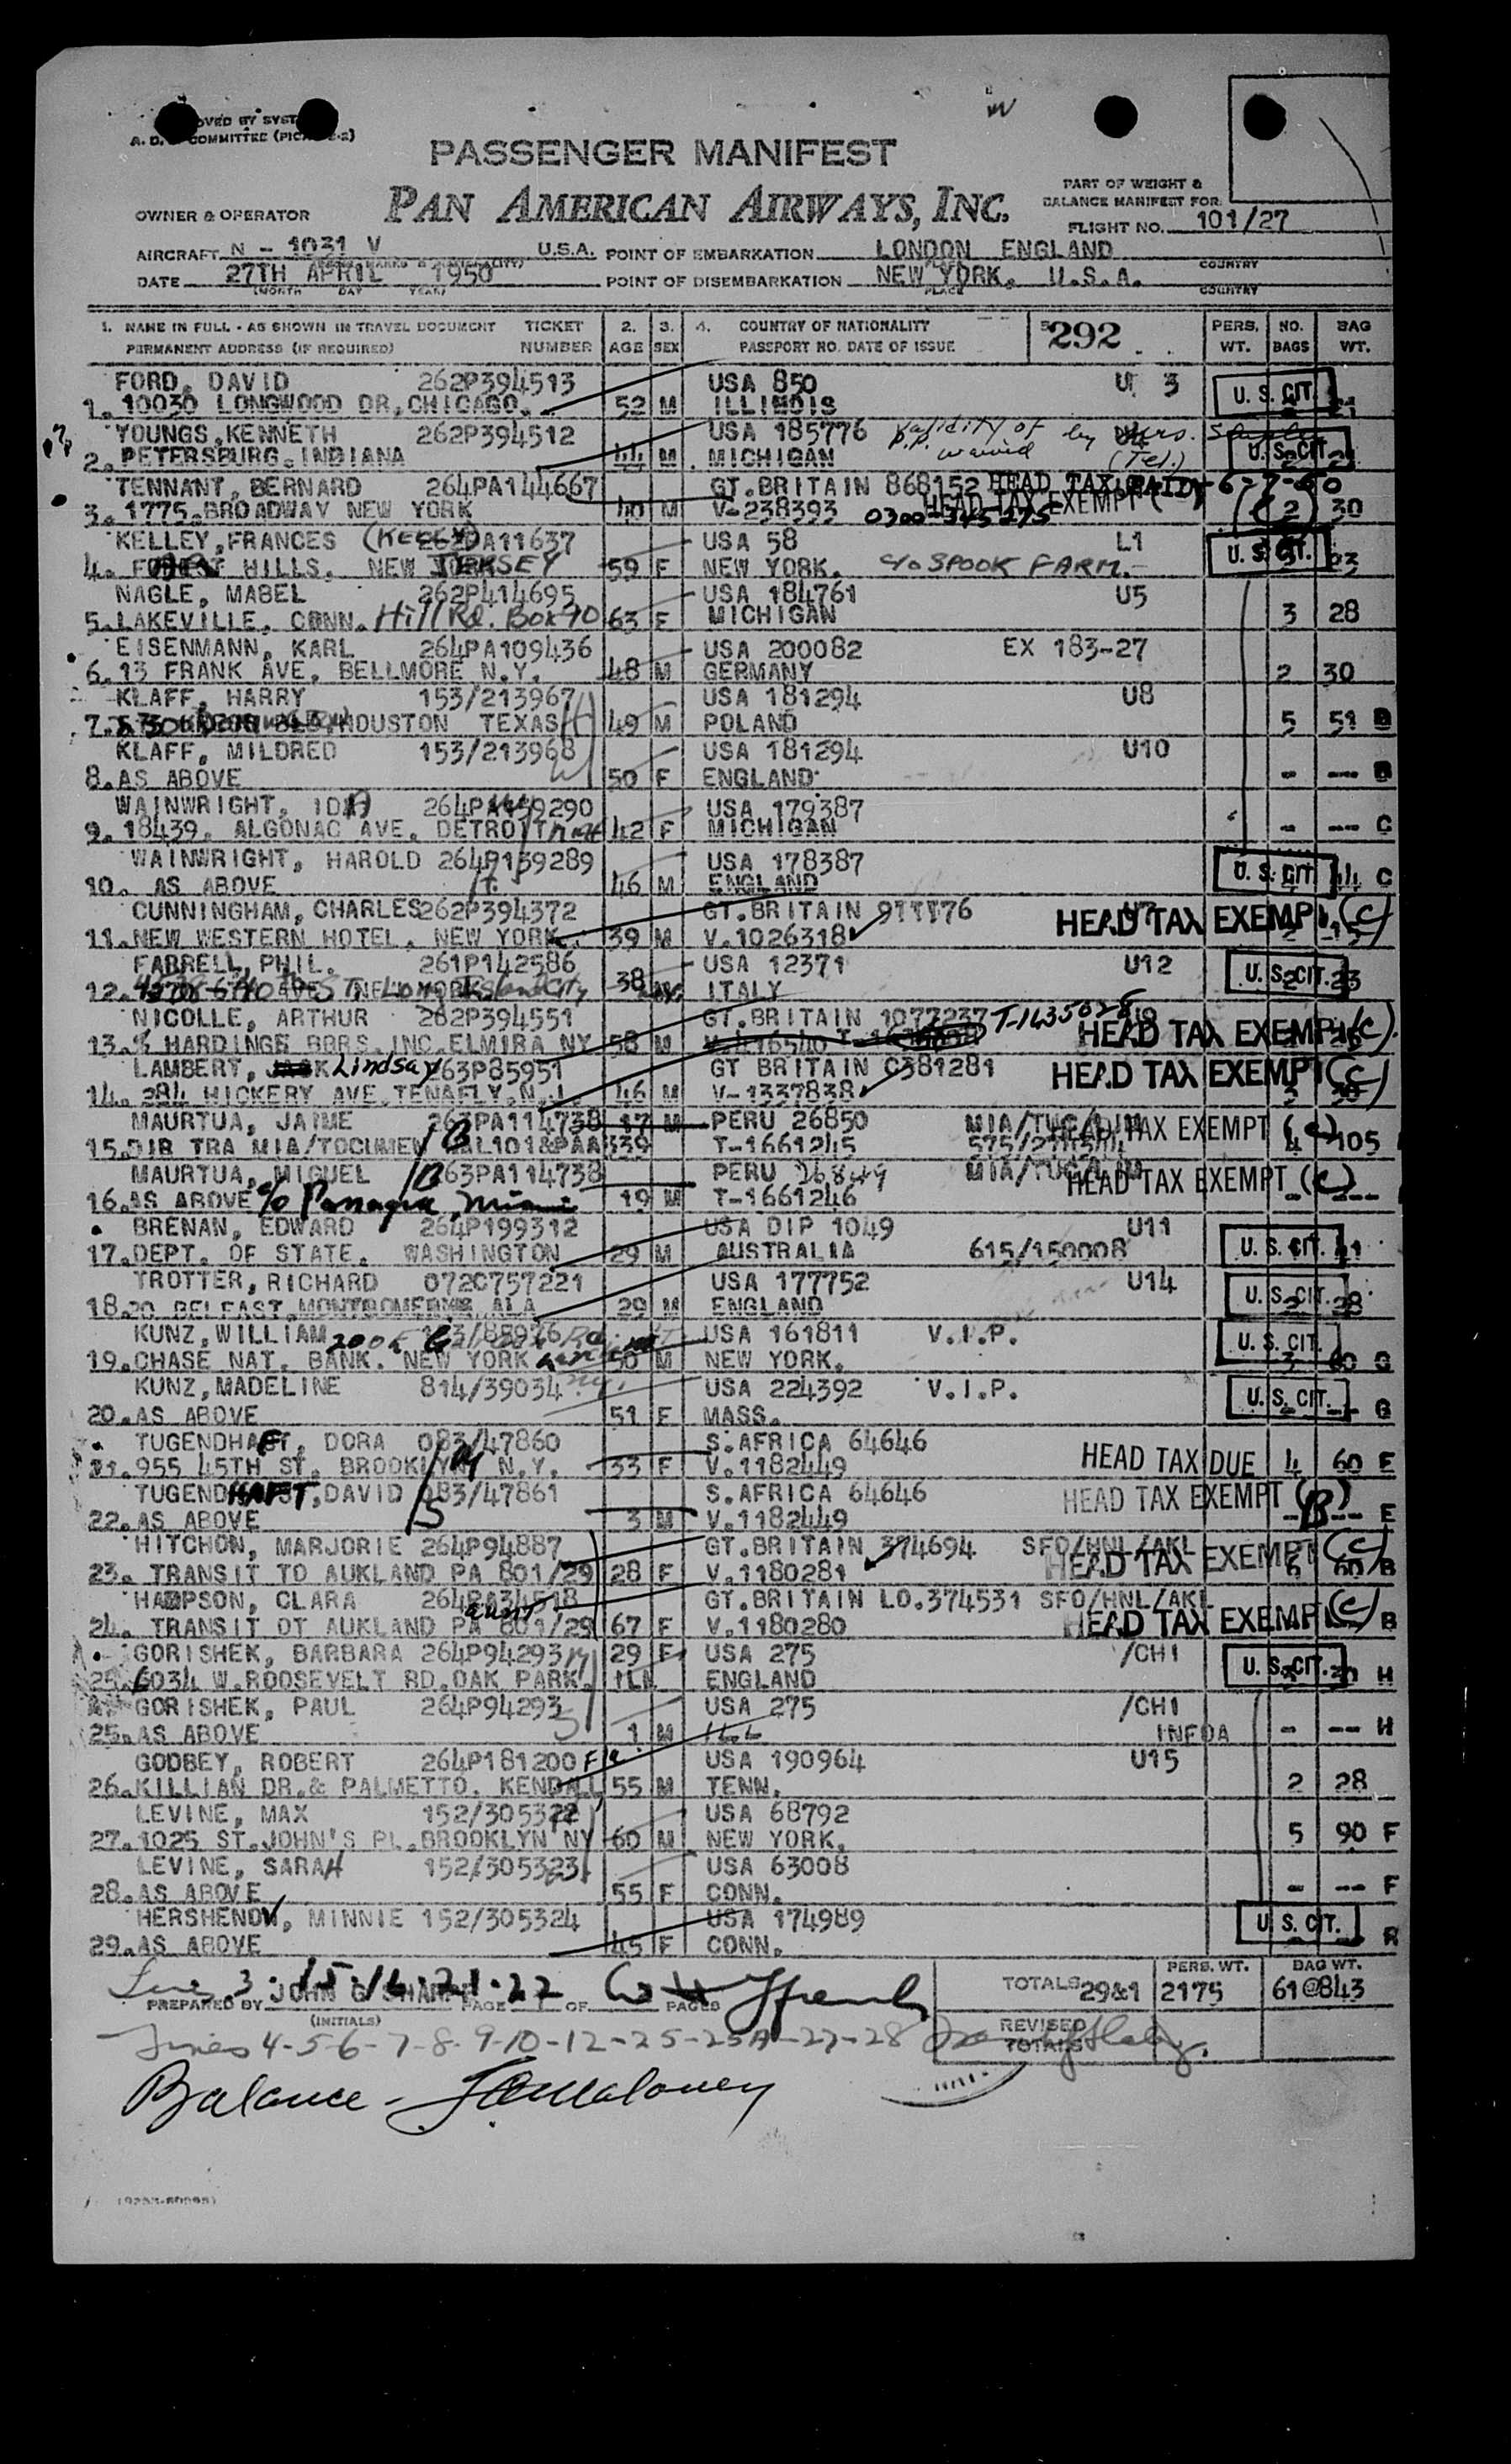 PASSENGER MANIFEST
PAN AMERICAN AIRWAYS, INC.
PART OF WEIGHT &
BALANCE MANIFEST FOR
OWNER & OPERATOR
FLIGHT NO. 101/27
AIRCRAFT N - 1031 V U.S.A. POINT OF EMBARKATION LONDON ENGLAND
COUNTRY
DATE 27TH APRIL 1950 POINT OF DISEMBARKATION NEW YORK, U.S.A.
(MONTH DAY YEAR) PLACE COUNTRY
1. NAME IN FULL - AS SHOWN IN TRAVEL DOCUMENT TICKET 2. 3. 4. COUNTRY OF NATIONALITY 292 PERS. NO. BAG
PERMANENT ADDRESS (IF REQUIRED) NUMBER AGE SEX PASSPORT NO. DATE OF ISSUE WT. BAGS WT.
FORD, DAVID 262P394513 USA 850 U 3 U.S. CIT.
1. 10030 LONGWOOD DR, CHICAGO. 52 M ILLINOIS
YOUNGS, KENNETH 262P394512 USA 185776 validity of by
2. PETERSBURG. INDIANA 44 M MICHIGAN P.P. waived (Tel.) U.S. CIT.
TENNANT, BERNARD 264PA144667 GT.BRITAIN 868152 HEAD TAX PAID
3. 1775 BROADWAY NEW YORK 40 M V-238393 0300-345275 HEAD TAX EXEMPT 2 30
KELLEY, FRANCES 262PA11637 USA 58 L1 U.S. CIT.
4. HILLS, NEW JERSEY 59 F NEW YORK. c/o SPOOK FARM. 23
NAGLE, MABEL 262P414695 USA 184761 U5
5. LAKEVILLE, CONN. Hill Rd. Box 90 63 F MICHIGAN 3 28
EISENMANN, KARL 264PA109436 USA 200082 EX 183-27
6. 13 FRANK AVE, BELLMORE N.Y. 48 M GERMANY 2 30
KLAFF, HARRY 153/213967 USA 181294 U8
7. HOUSTON TEXAS 49 M POLAND 5 51 B
KLAFF, MILDRED 153/213968 USA 181294 U10
8. AS ABOVE 50 F ENGLAND - --- B
WAINWRIGHT, IDA 264PA159290 USA 179387
9. 18439. ALGONAC AVE. DETROIT 42 F MICHIGAN - --- C
WAINWRIGHT, HAROLD 264P159289 USA 178387
10. AS ABOVE 46 M ENGLAND U.S. CIT. 44 C
CUNNINGHAM, CHARLES 262P394372 GT.BRITAIN HEAD TAX EXEMPT (C)
11. NEW WESTERN HOTEL. NEW YORK. 39 M V.1026318
FARRELL, PHIL. 261P142586 USA 12371 U12 U.S. CIT.
12. Long Island City 38 ITALY 23
NICOLLE, ARTHUR 262P394551 GT.BRITAIN 1077237 T-1435028
13. % HARDINGE BROS. INC. ELMIRA NY 58 M HEAD TAX EXEMPT (C)
LAMBERY, Lindsay 263P85951 GT BRITAIN C381281 HEAD TAX EXEMPT (C)
14. 284 HICKERY AVE. TENAFLY. N.J. 46 M V-1337838
MAURTUA, JAIME 263PA114738 17 M PERU 26850 MIA/TUC/LIM
15. DIR TRA MIA/TOCUMEN T-1661245 HEAD TAX EXEMPT (C) 4 105
MAURTUA, MIGUEL 263PA114738 PERU 26849 MIA/TUC/LIM
16. AS ABOVE c/o Panagra, Miami 19 M T-1661246 HEAD TAX EXEMPT (C)
BRENAN, EDWARD 264P199312 USA DIP 1049 U11
17. DEPT. OF STATE. WASHINGTON 29 M AUSTRALIA 615/150008 U.S. CIT.
TROTTER, RICHARD 0720757221 USA 177752 U14
18. 20 BELFAST, ALA 29 M ENGLAND U.S. CIT. 28
KUNZ, WILLIAM USA 161811 V.I.P. U.S. CIT.
19. CHASE NAT. BANK. NEW YORK 50 M NEW YORK. 3 60 G
KUNZ, MADELINE 814/39034 USA 224392 V.I.P. U.S. CIT.
20. AS ABOVE 51 F MASS. G
TUGENDHAFT, DORA 083/47860 S.AFRICA 64646
21. 955 45TH ST. BROOKLYN N.Y. 33 F V.1182449 HEAD TAX DUE 4 60 E
TUGENDHAFT, DAVID 083/47861 S.AFRICA 64646 HEAD TAX EXEMPT (B)
22. AS ABOVE 3 M V.1182449 E
HITCHON, MARJORIE 264P94887 GT.BRITAIN 374694 SFO/HNL/AKL
23. TRANSIT TO AUKLAND PA 801/29 28 F V.1180281 HEAD TAX EXEMPT (C) 60 B
HAMPSON, CLARA 264PA34518 GT.BRITAIN LO.374531 SFO/HNL/AKL
24. TRANSIT OT AUKLAND PA 801/29 aunt 67 F V.1180280 HEAD TAX EXEMPT (C) B
GORISHEK, BARBARA 264P94293 29 F USA 275 /CHI
25. 6034 W. ROOSEVELT RD. OAK PARK. ILL ENGLAND U.S. CIT. 30 H
GORISHEK, PAUL 264P94293 USA 275 /CHI
25. AS ABOVE 1 M ILL INFOA - --- H
GODBEY, ROBERT 264P181200 Fla. USA 190964 U15
26. KILLIAN DR. & PALMETTO. KENDALL 55 M TENN. 2 28
LEVINE, MAX 152/305322 USA 68792
27. 1025 ST. JOHN'S PL. BROOKLYN NY 60 M NEW YORK. 5 90 F
LEVINE, SARAH 152/305323 USA 63008
28. AS ABOVE 55 F CONN. - --- F
HERSHENOV, MINNIE 152/305324 USA 174989 U.S. CIT.
29. AS ABOVE 45 F CONN.
PERS. WT. BAG WT.
TOTALS 29&1 2175 61@843
PREPARED BY JOHN G PAGE OF PAGES
(INITIALS)
REVISED
TOTALS
Lines 4-5-6-7-8-9-10-12-25-25A-27-28
Balance - Maloney